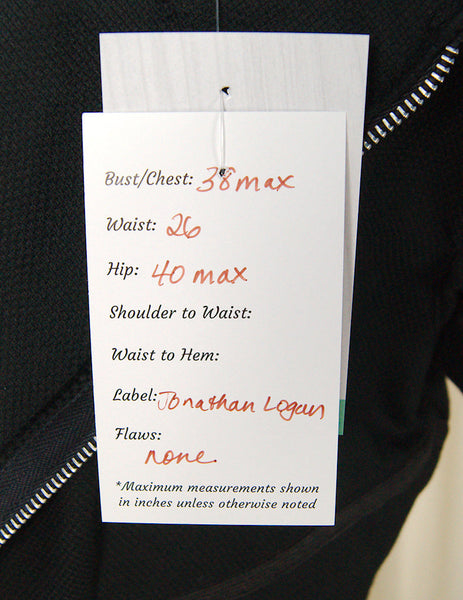 Bust/Chest: 38 max
Waist: 26
Hip: 40 max
Shoulder to Waist:
Waist to Hem:
Label: Jonathan Logan
Flaws:
none.
*Maximum measurements shown
in inches unless otherwise noted